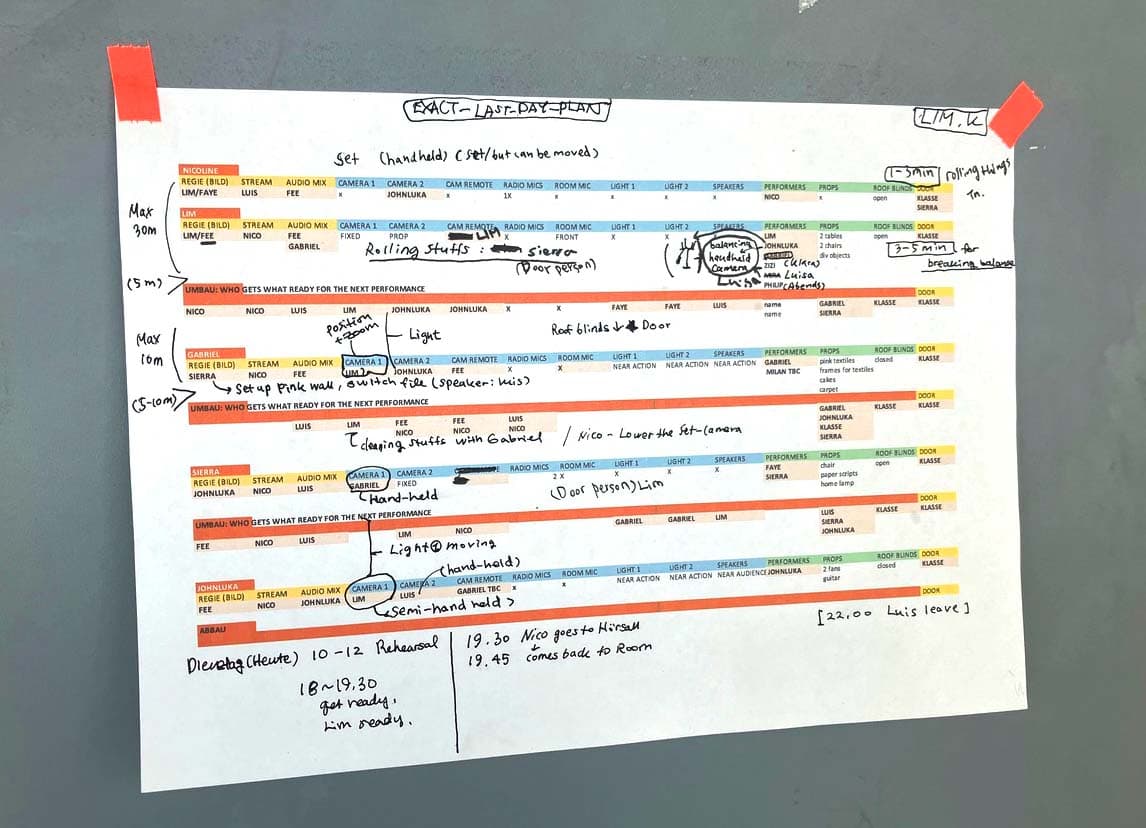 EXACT-LAST-DAY-PLAN
LIM.K
Set (handheld) (set/but can be moved)
1-3min rolling things in.
NICOLINE
REGIE (BILD) STREAM AUDIO MIX CAMERA 1 CAMERA 2 CAM REMOTE RADIO MICS ROOM MIC LIGHT 1 LIGHT 2 SPEAKERS PERFORMERS PROPS ROOF BLINDS DOOR
LIM/FAYE LUIS FEE x JOHNLUKA x 1X x x x x NICO x open KLASSE
SIERRA
Max 30m
LIM
REGIE (BILD) STREAM AUDIO MIX CAMERA 1 CAMERA 2 CAM REMOTE RADIO MICS ROOM MIC LIGHT 1 LIGHT 2 SPEAKERS PERFORMERS PROPS ROOF BLINDS DOOR
LIM/FEE NICO FEE FIXED PROP LIM X FRONT X X LIM 2 tables open KLASSE
GABRIEL JOHNLUKA 2 chairs
Rolling stuffs : sierra
(Door person)
balancing handheld camera
Luisa
div objects
ZIZI (Klara)
Luisa
PHILIP (Abends)
3-5 min for breaking balance
(5m)
UMBAU: WHO GETS WHAT READY FOR THE NEXT PERFORMANCE DOOR
NICO NICO LUIS LIM JOHNLUKA JOHNLUKA X X FAYE FAYE LUIS name GABRIEL KLASSE KLASSE
name SIERRA
position + zoom
Light
Roof blinds ↓ Door
Max 10m
GABRIEL
REGIE (BILD) STREAM AUDIO MIX CAMERA 1 CAMERA 2 CAM REMOTE RADIO MICS ROOM MIC LIGHT 1 LIGHT 2 SPEAKERS PERFORMERS PROPS ROOF BLINDS DOOR
SIERRA NICO FEE LIM JOHNLUKA FEE X X NEAR ACTION NEAR ACTION NEAR ACTION GABRIEL pink textiles closed KLASSE
MILAN TBC frames for textiles
cakes
carpet
Set up pink wall, switch file (speaker: luis)
(5-10m)
UMBAU: WHO GETS WHAT READY FOR THE NEXT PERFORMANCE DOOR
LUIS LIM FEE FEE LUIS GABRIEL KLASSE KLASSE
NICO NICO NICO JOHNLUKA
KLASSE
SIERRA
cleaning stuffs with Gabriel / Nico - Lower the set-camera
SIERRA
REGIE (BILD) STREAM AUDIO MIX CAMERA 1 CAMERA 2 RADIO MICS ROOM MIC LIGHT 1 LIGHT 2 SPEAKERS PERFORMERS PROPS ROOF BLINDS DOOR
JOHNLUKA NICO LUIS GABRIEL FIXED 2 X X X X FAYE chair open KLASSE
SIERRA paper scripts
home lamp
Hand-held
(Door person) Lim
UMBAU: WHO GETS WHAT READY FOR THE NEXT PERFORMANCE DOOR
FEE NICO LUIS LIM NICO GABRIEL GABRIEL LIM LUIS KLASSE KLASSE
SIERRA
JOHNLUKA
Light② moving
(hand-hold)
JOHNLUKA
REGIE (BILD) STREAM AUDIO MIX CAMERA 1 CAMERA 2 CAM REMOTE RADIO MICS ROOM MIC LIGHT 1 LIGHT 2 SPEAKERS PERFORMERS PROPS ROOF BLINDS DOOR
FEE NICO JOHNLUKA LIM LUIS GABRIEL TBC x x NEAR ACTION NEAR ACTION NEAR AUDIENCE JOHNLUKA 2 fans closed KLASSE
guitar
Semi-hand held >
ABBAU DOOR
[22.00 Luis leave]
Dienstag (Heute) 10-12 Rehearsal
18~19.30
get ready,
Lim ready.
19.30 Nico goes to Hörsall
19.45 comes back to Room